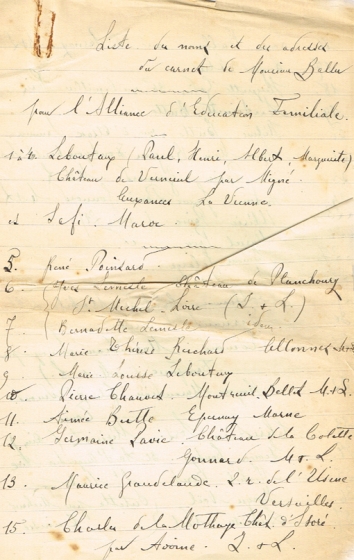 Liste des noms et des adresses
du carnet de Monsieur Baller
pour l'Alliance d'Education Familiale.
1 à 4. Leboutaux (Paul, Henri, Albert, Marguerite)
Château de Verneuil par Migné.
La Vienne.
et Sefi. Maroc.
5. René Poinsard
6. Yves Château de Planchoury
St Michel. Loire (I & L.)
7 Bernadette idem.
8 Marie Thérèse M&L
9 Marie Louise Leboutay
10 Pierre Chauvet Montreuil Bellet M&L.
11. Aimée Butte Epernay Marne
12. Germaine Lavie Château de la Colette
Gonnord. M & L.
13. Maurice 2. r. de l'Usine
Versailles.
15. Charles de la Mothaye Chât. d'
par Avoine I. & L.